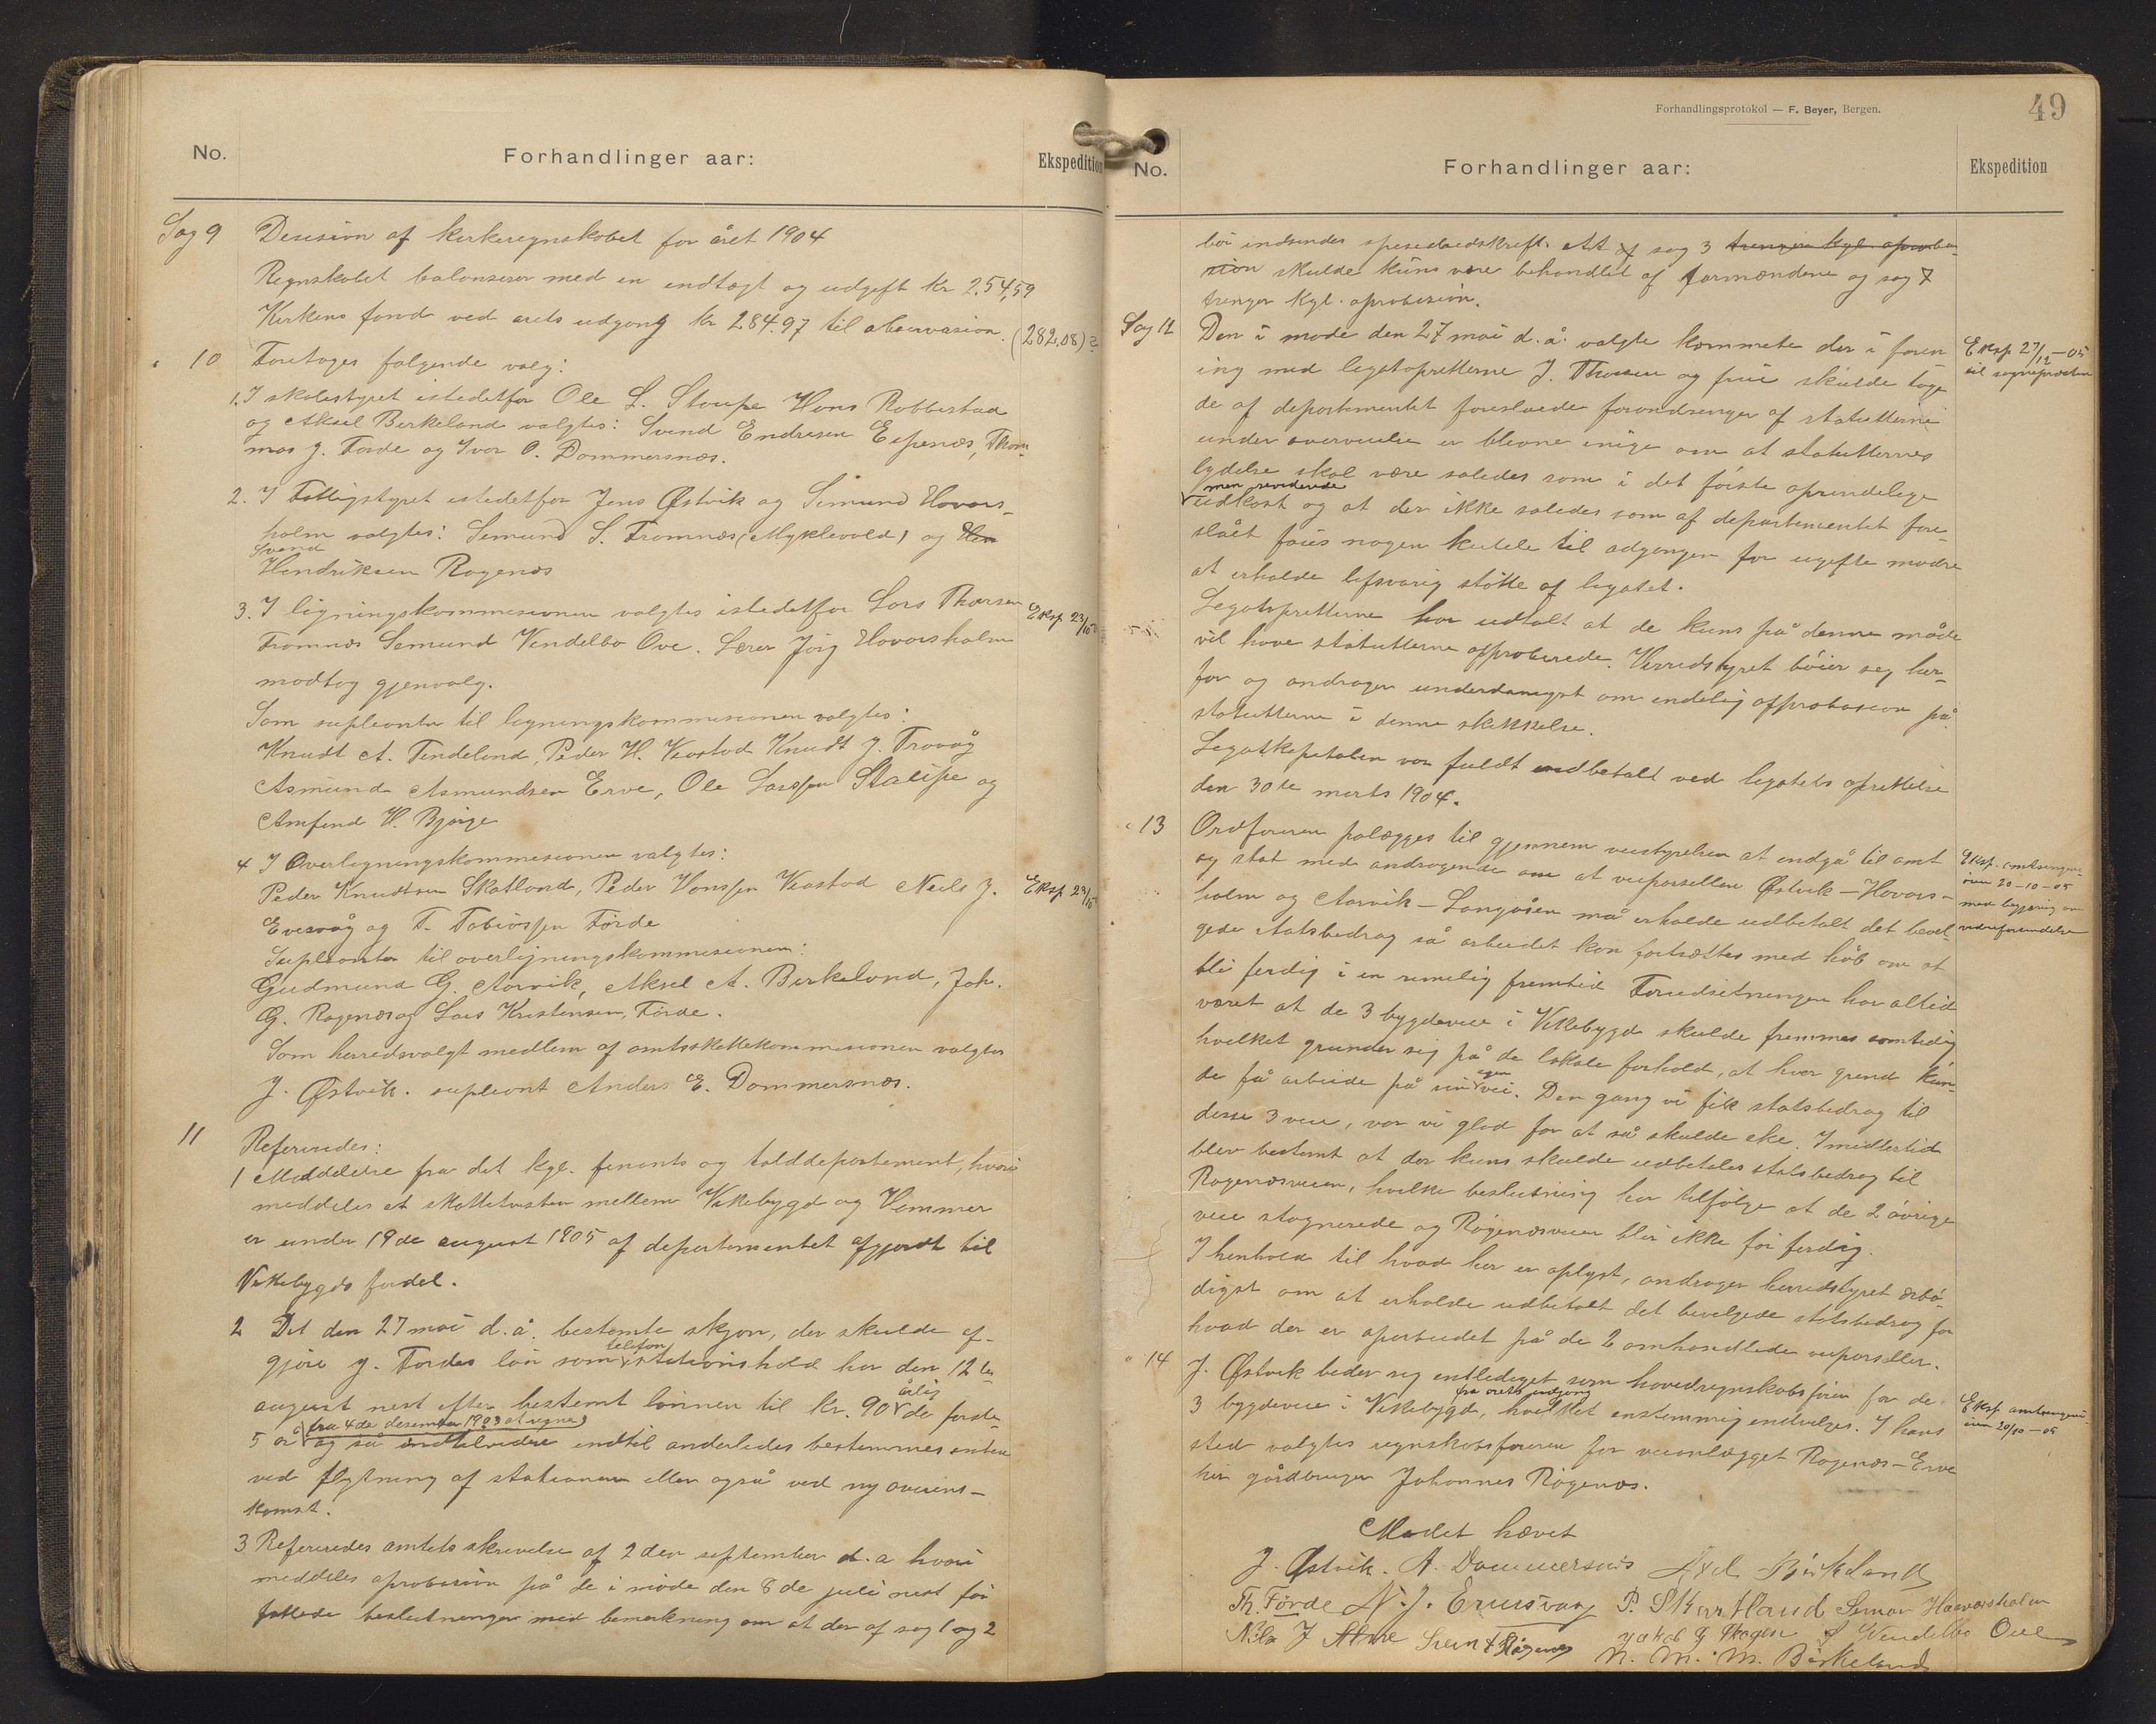 No.
Forhandlinger aar:
Ekspedition
Sag 9 Desision af kirkeregnskabet for året 1904
Regnskabet balanserer med en indtægt og udgift kr 254,59
Kirkens fond ved årets udgang kr 284.97 til observasion. (282.08)
" 10 Foretages følgende valg:
1. I skolestyret istedetfor Ole L. Stoupe Hans Robbestad
og Aksel Birkeland valgtes: Svend Endresen Espenæs, Thom-
mas J. Førde og Ivar O. Dommersnæs.
2. I Fattigstyret istedetfor Jens Østvik og Simund Hovars-
holm valgtes: Simund S. Fromnæs (Myklevold) og
Svend
Hendriksen Røgenæs
3. I ligningskommisionen valgtes istedetfor Lars Thorsen
Eksp 23/10
Fromnæs Semund Vendelbo Ove. Lærer Jørg Hovarsholm
modtog gjenvalg.
Som supleanter til ligningskommisionen valgtes:
Knudt A. Tindeland, Peder H. Veastad Knudt J. Trovåg
Asmund Asmundsen Erve, Ole Larssen Staupe og
Amfind H. Bjørge
4 I Overligningskommisionen valgtes:
Peder Knudtsen Skatland, Peder Hanssen Veastad Neils J.
Eksp 23/10
Evesvåg og T. Tobiassen Førde
Supleanter til overligningskommisionen:
Gudmund G. Aarvik, Aksel A. Birkeland, Joh.
G. Røgenæs og Lars Kristensen, Førde.
Som herredsvalgt medlem af amtsskattekommisionen valgtes
J. Østvik. supleant Anders E. Dommersnæs.
11 Refereredes:
1 Meddelelse fra det kgl. finants og tolddepartement, hvori
meddeles at skattetvisten mellem Vikebygd og Hammer
er under 19de august 1905 af departementet afgjordt til
Vikebygds fordel.
2 Det den 27 mai d.å. bestemte skjøn, der skulde af-
gjøre J. Førdes løn som telefon stationshold har den 12te
august næst efter bestemt lønnen til kr. 90 årlig de første
5 år (fra 4de desember 1903 at regne) og så indtil anderledes bestemmes enten
ved flytning af stationen eller også ved ny overens-
komst.
3 Refereredes amtets skrivelse af 2den september d.a hvori
meddeles aprobasion på de i møde den 8de juli næst før
fattede beslutninger med bemerkning om at der af sag 1 og 2
Forhandlingsprotokol — F. Beyer, Bergen.
49
No.
Forhandlinger aar:
Ekspedition
bør indsendes spesialudskrift. At sag 3 trenger kgl. aproba-
sion skulde kuns være behandlet af formændene og sag 7
trenger kgl. aprobasion.
Sag 12 Den i møde den 27 mai d.å. valgte kommete der i foren
Eksp 27/12–05
til sognepræsten
ing med legatopretterne J. Thorsen og frue skulde tage
de af departementet foreslåede forandringer af statutterne
under overveielse er blevne enige om at statutternes
lydelse skal være således som i det første oprindelige
men reviderede
udkast og at der ikke således som af departementet fore-
slået føies nogen kutele til adgangen for ugifte mødre
at erholde lifsvarig støtte af legatet.
Legatopretterne har udtalt at de kuns på denne måde
vil have statutterne approberede. Herredstyret bøier seg her-
for og andrager underdanigst om endelig approbasion på
statutterne i denne skikkelse.
Legatkapitalen var fuldt indbetalt ved legatets oprettelse
den 30te marts 1904.
" 13 Ordføreren pålægges til gjennem veistyrelsen at indgå til amt
Eksp. amtsingeni-
øren 20–10–05
med begjæring om
videreforsendelse
og stat med andragende om at veiparsellen Østvik – Hovars-
holm og Aarvik – Langåsen må erholde udbetalt det bevil-
gede statsbedrag så arbeidet kan fortsættes med håb om at
bli ferdig i en rimelig fremtid Forudsetningen har altid
været at de 3 bygdeveie i Vikebygd skulde fremmes samtidig
hvilket grunder sig på de lokale forhold, at hver grend kun-
de få arbeide på sin egen vei. Den gang vi fik statsbedrag til
disse 3 veie, var vi glad for at så skulde ske. Imidlertid
blev bestemt at der kuns skulde udbetales statsbedrag til
Røgenæsveien, hvilke beslutning har tilfølge at de 2 øvrige
veie stagnerede og Røgenæsveien blir ikke før ferdig.
I henhold til hvad her er oplyst, andrager herredstyret ærbø-
digst om at erholde udbetalt det bevilgede statsbedrag for
hvad der er oparbeidet på de 2 omhandlede veiparseller.
" 14 J. Østvik beder seg entlediget som hovedregnskabsfører for de
Eksp amtsingeni-
øren 20/10–05
3 bygdeveie i Vikebygd, fra årets udgang hvilket enstemmig indvilges. I hans
sted valgtes regnskabsføreren for veianlægget Røgenæs – Erve
hr. gårdbruger Johannes Røgenæs.
Mødet hævet
J. Østvik. A. Dommersnes Axel Birkeland
Th. Førde N. J. Eruesvaag P. Skartland Simon Haavarsholm
Nils J Svend Røgenes Jakob S Vendelbo Ove
N. M. M. Birkeland